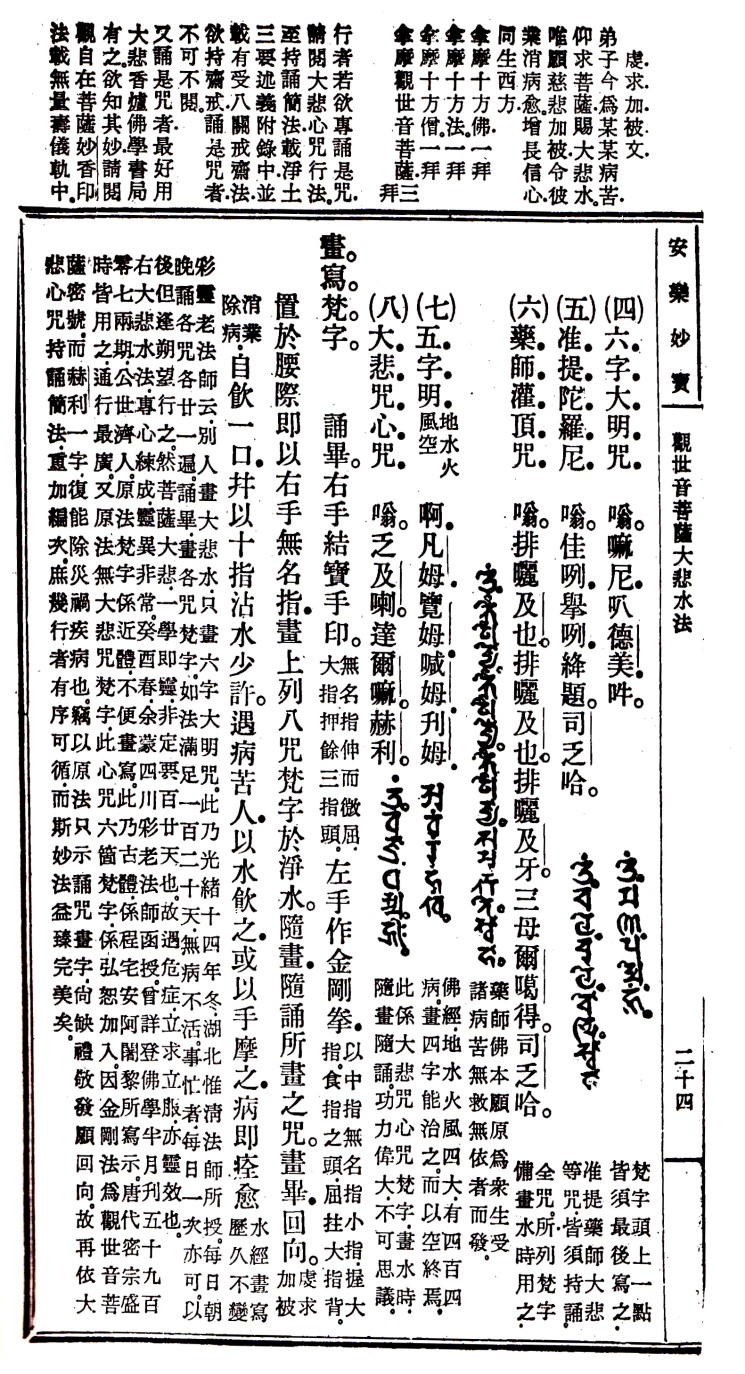 虔求加被文.
弟子今為某某病苦.
仰求菩薩賜大悲水.
唯願慈悲加被.令彼
業消病愈.增長信心.
同生西方.
拿摩十方佛一拜
拿摩十方法一拜
拿摩十方僧一拜
拿摩觀世音菩薩三拜
行者若欲專誦是咒.
請閱大悲心咒行法.
至持誦簡法.載淨土
三要述義附錄中.並
載有受八關戒齋法.
欲持齋戒誦是咒者.
不可不閱.
又誦是咒者.最好用
大悲香爐.佛學書局
有之.欲知其妙.請閱
觀自在菩薩妙香印
法.載無量壽儀軌中.
安樂妙寶 觀世音菩薩大悲水法 二十四
(四)六字大明咒. 嗡。嘛尼叭德美吽。
梵字頭上一點
皆須最後寫之
(五)准提陀羅尼. 嗡。佳咧舉咧絳題.司乏哈。
准提藥師大悲
等咒.皆須持誦
(六)藥師灌頂咒. 嗡。排曬及也。排曬及也.排曬及牙.三母爾噶得。司乏哈。
全咒.所列梵字
備畫水時用之.
藥師佛本願原為衆生受
諸病苦無救無依者而發.
(七)五字明.地水火風空 啊.凡姆.覽姆.喊姆.刋姆.
佛經.地水火風四大.有四百四
病.畫四字能治之.而以空終焉.
(八)大悲咒心咒. 嗡。乏及喇。達爾嘛.赫利。
此係大悲咒心咒梵字.畫水時.
隨畫隨誦.功力偉大.不可思議.
畫。寫。梵。字。 誦畢.右手結寶手印。無名指伸而微屈.大指押餘三指頭. 左手作金剛拳.以中指無名指小指.握大指.食指之頭.屈拄大指背。
置於腰際.即以右手無名指.畫上列八咒梵字於淨水。隨畫.隨誦所畫之咒。畫畢.回向。虔求加被
消業除病.自飲一口.幷以十指沾水少許。遇病苦人.以水飲之.或以手摩之.病即痊愈.水經畫寫歷久不變
彩靈老法師云.別人畫大悲水.只畫六字大明咒.此乃光緒十四年冬.湖北惟清法師所授.每日朝
晚誦各咒各廿一遍.誦畢.畫各咒梵字.如法滿足一百二十天.無病不活.事忙者.每日一次亦可.以
後但逢朔望行之.然菩薩大悲.一學即靈.非定要百廿天也.故遇危症.立求立服.亦靈效也.
右大悲水法.專心練成.靈異非常.癸酉春.余蒙四川彩老法師函授.曾詳登佛學半月刊五十九百
零七兩期.公世濟人.原法梵字係近體.不便畫寫.此乃古體.係程宅安阿闍黎所寫示.唐代密宗盛
時皆用之.通行最廣.又原法無大悲咒梵字.此心咒六箇梵字.係弘恕加入.因金剛法為觀世音菩
薩密號.而赫利一字.復能除災禍疾病也.竊以原法只示誦咒畫字.尚缺禮敬發願回向.故再依大
悲心咒持誦簡法.重加編次.庶幾行者有序可循.而斯妙法益臻完美矣.